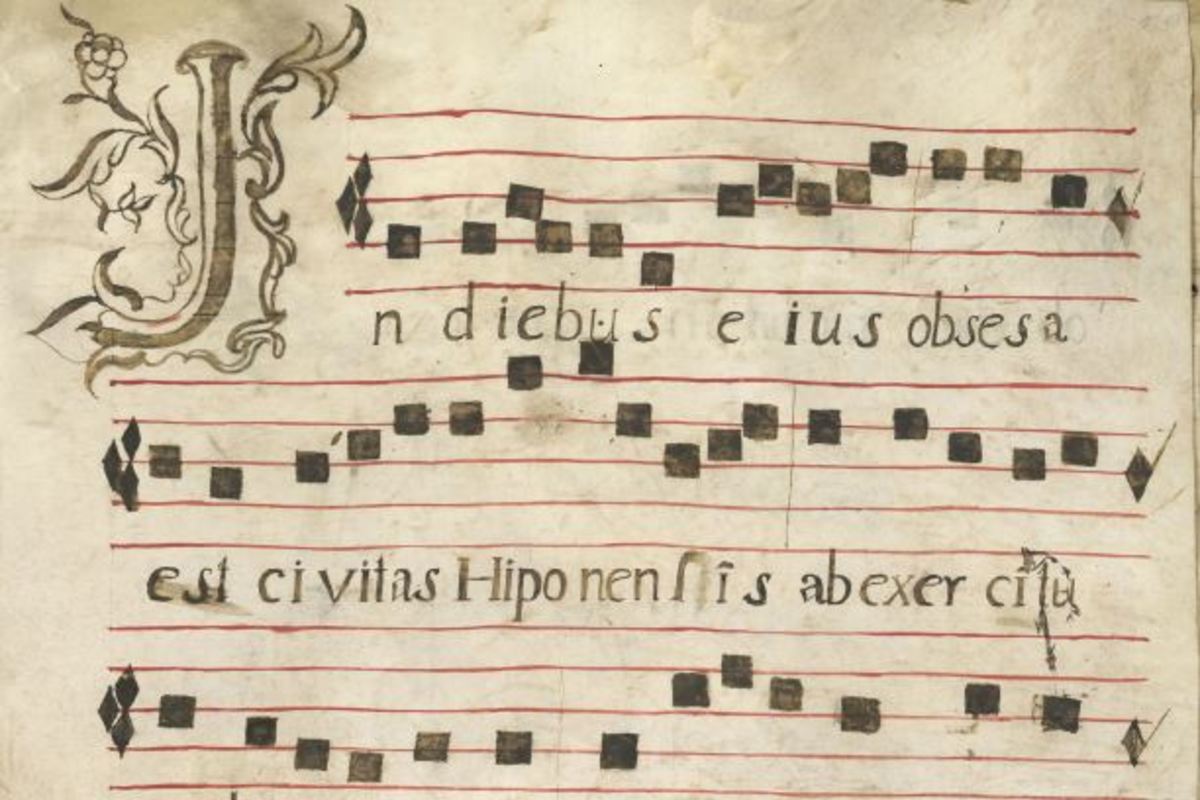 In diebus eius obsesa
est civitas Hiponensis ab exercitu